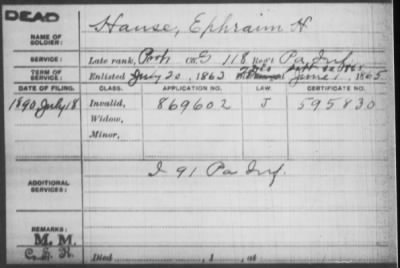 DEAD
NAME OF SOLDIER: Hause, Ephraim H
SERVICE: Late rank, Co. G 118 Reg't Pa Inf
TERM OF SERVICE: Enlisted July 20, 1863 June 1, 1865
DATE OF FILING. CLASS. APPLICATION NO. LAW. CERTIFICATE NO.
1890 July 18 Invalid, 869602 J 595830
Widow,
Minor,
ADDITIONAL SERVICES: I 91 Pa Inf.
REMARKS:
M. M.
Died , 1 , at